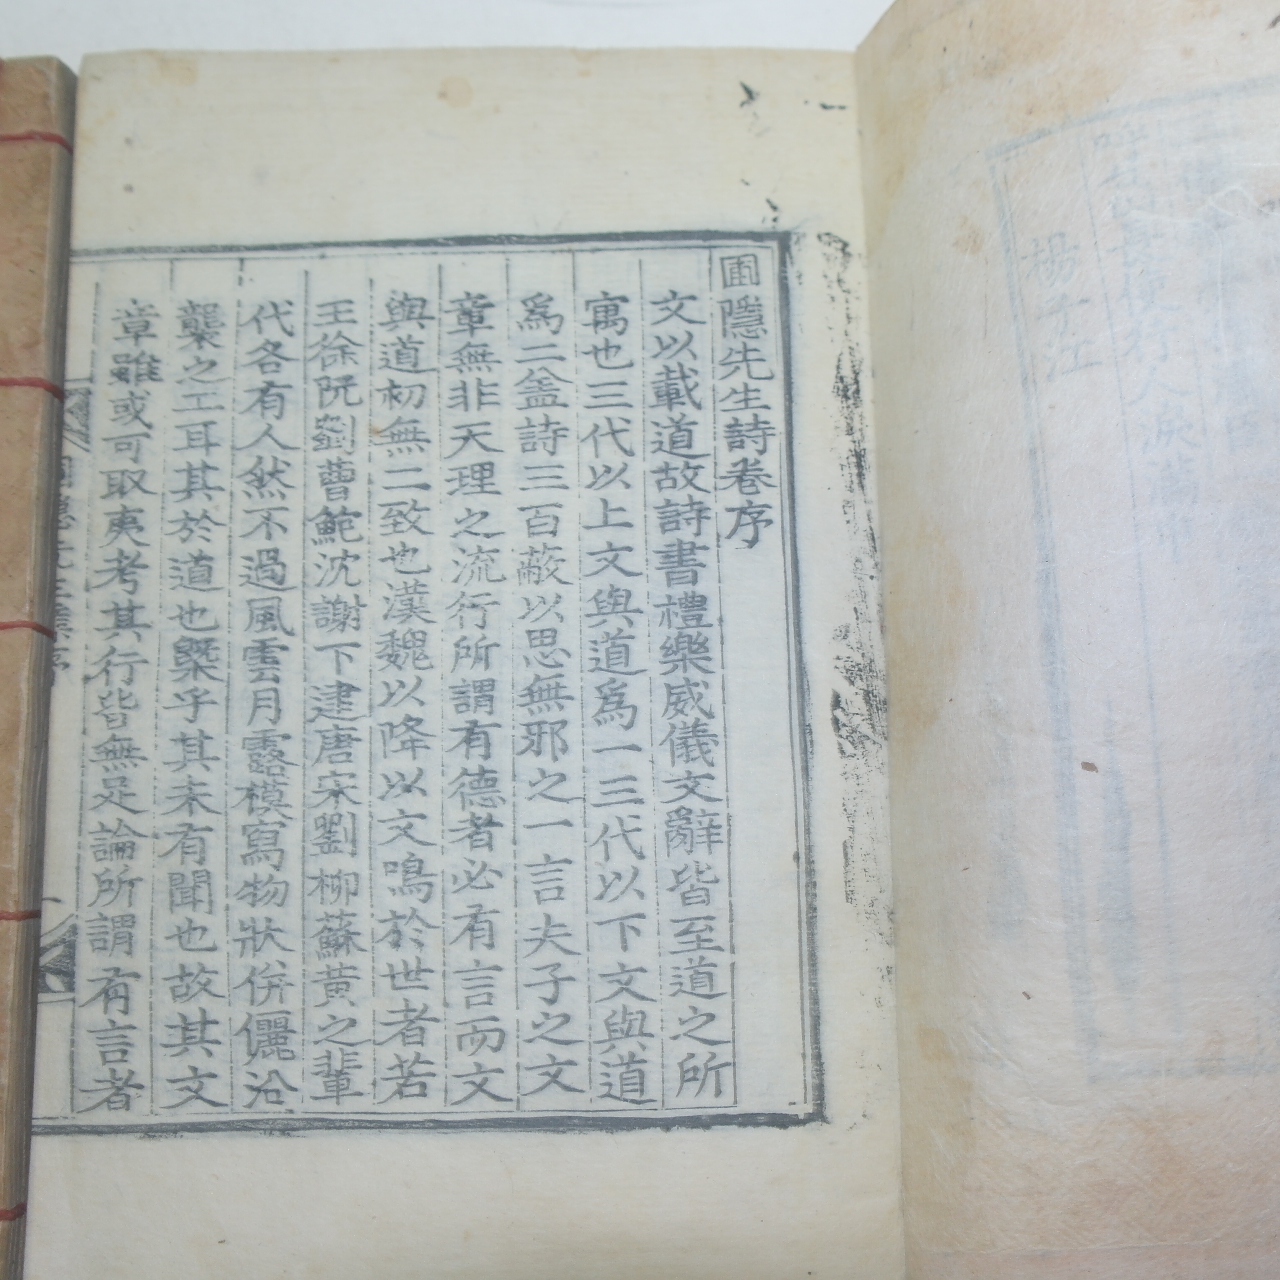 圃隱先生詩卷序
文以載道故詩書禮樂威儀文辭皆至道之所
寓也三代以上文與道爲一三代以下文與道
爲二盖詩三百蔽以思無邪之一言夫子之文
章無非天理之流行所謂有德者必有言而文
與道初無二致也漢魏以降以文鳴於世者若
王徐阮劉曹鮑沈謝下逮唐宋劉柳蘇黃之輩
代各有人然不過風雲月露模寫物狀倂儷沿
襲之工耳其於道也槩乎其未有聞也故其文
章雖或可取夷考其行皆無足論所謂有言者
楊子江